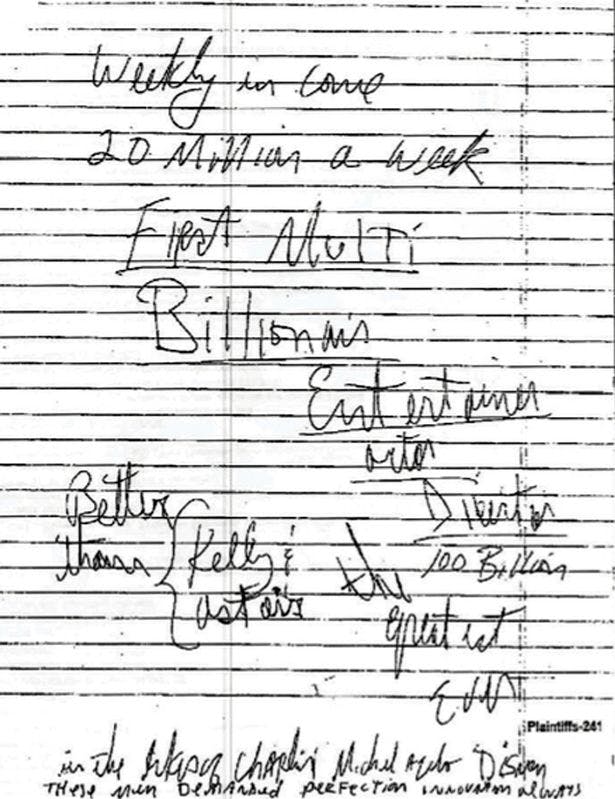 Weekly in come
20 Million a week
First Multi
Billionair
Entertainer
actor
Director
Better
than { Kelly &
astair
the
100 Billion
greatest
ever
Plaintiffs-241
in the Chaplin Michel Disney
These men demanded perfection innovation always